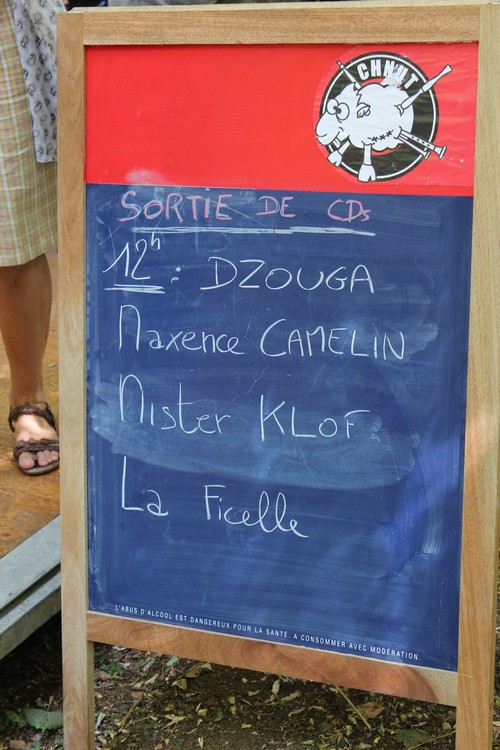 CHNUT
SORTIE DE CDs
12h : DZOUGA
Maxence CAMELIN
Mister KLOF
La Ficelle
L'ABUS D'ALCOOL EST DANGEREUX POUR LA SANTÉ. A CONSOMMER AVEC MODÉRATION.